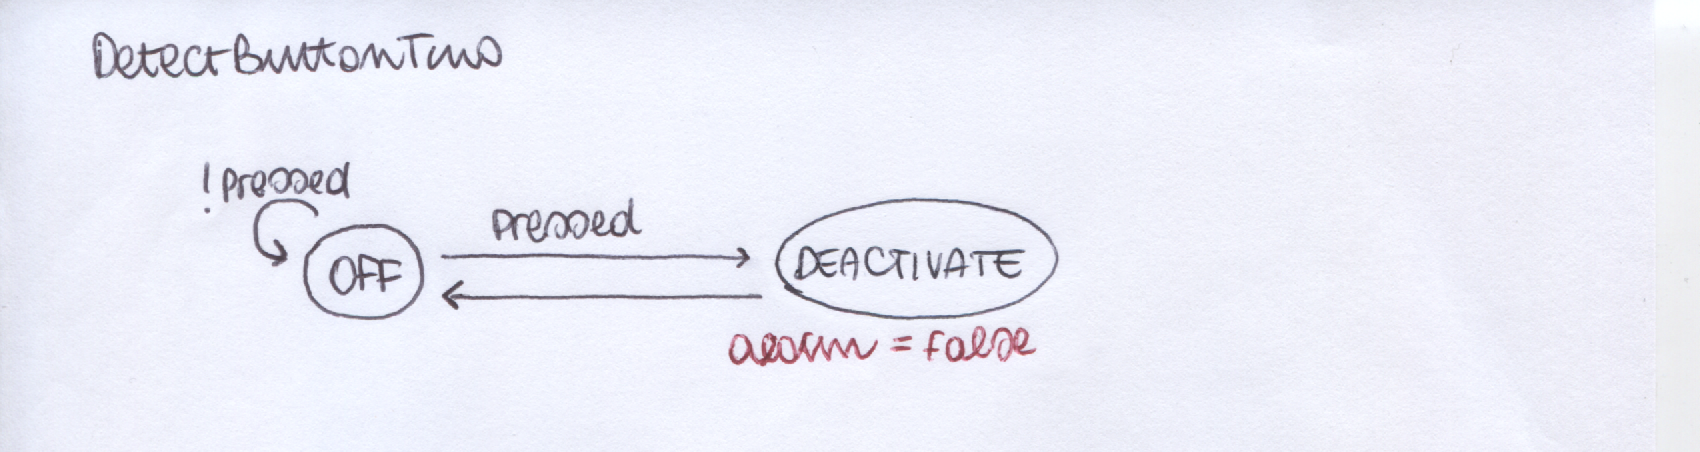 DetectButtonTwo
!pressed
pressed
OFF
DEACTIVATE
alarm = false